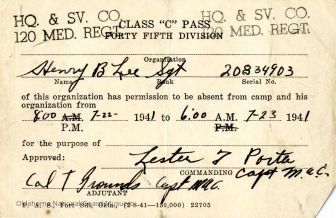 HQ. & SV. CO.
120 MED. REGT.
CLASS "C" PASS
FORTY FIFTH DIVISION
HQ. & SV. CO.
120 MED. REGT.
Organization
Henry B Lee Sgt 20834903
Name Rank Serial No.
of this organization has permission to be absent from camp and his
organization from
8:00 A.M. 7-22- 1941 to 6:00 A.M. 7-23 1941
P.M. P.M.
for the purpose of
Approved: Lester F Porta
COMMANDING Capt M.A.C.
Cal T Grounds Capt MAC
ADJUTANT
Fort Sill, Okla. (2-8-41—150,000) 22705